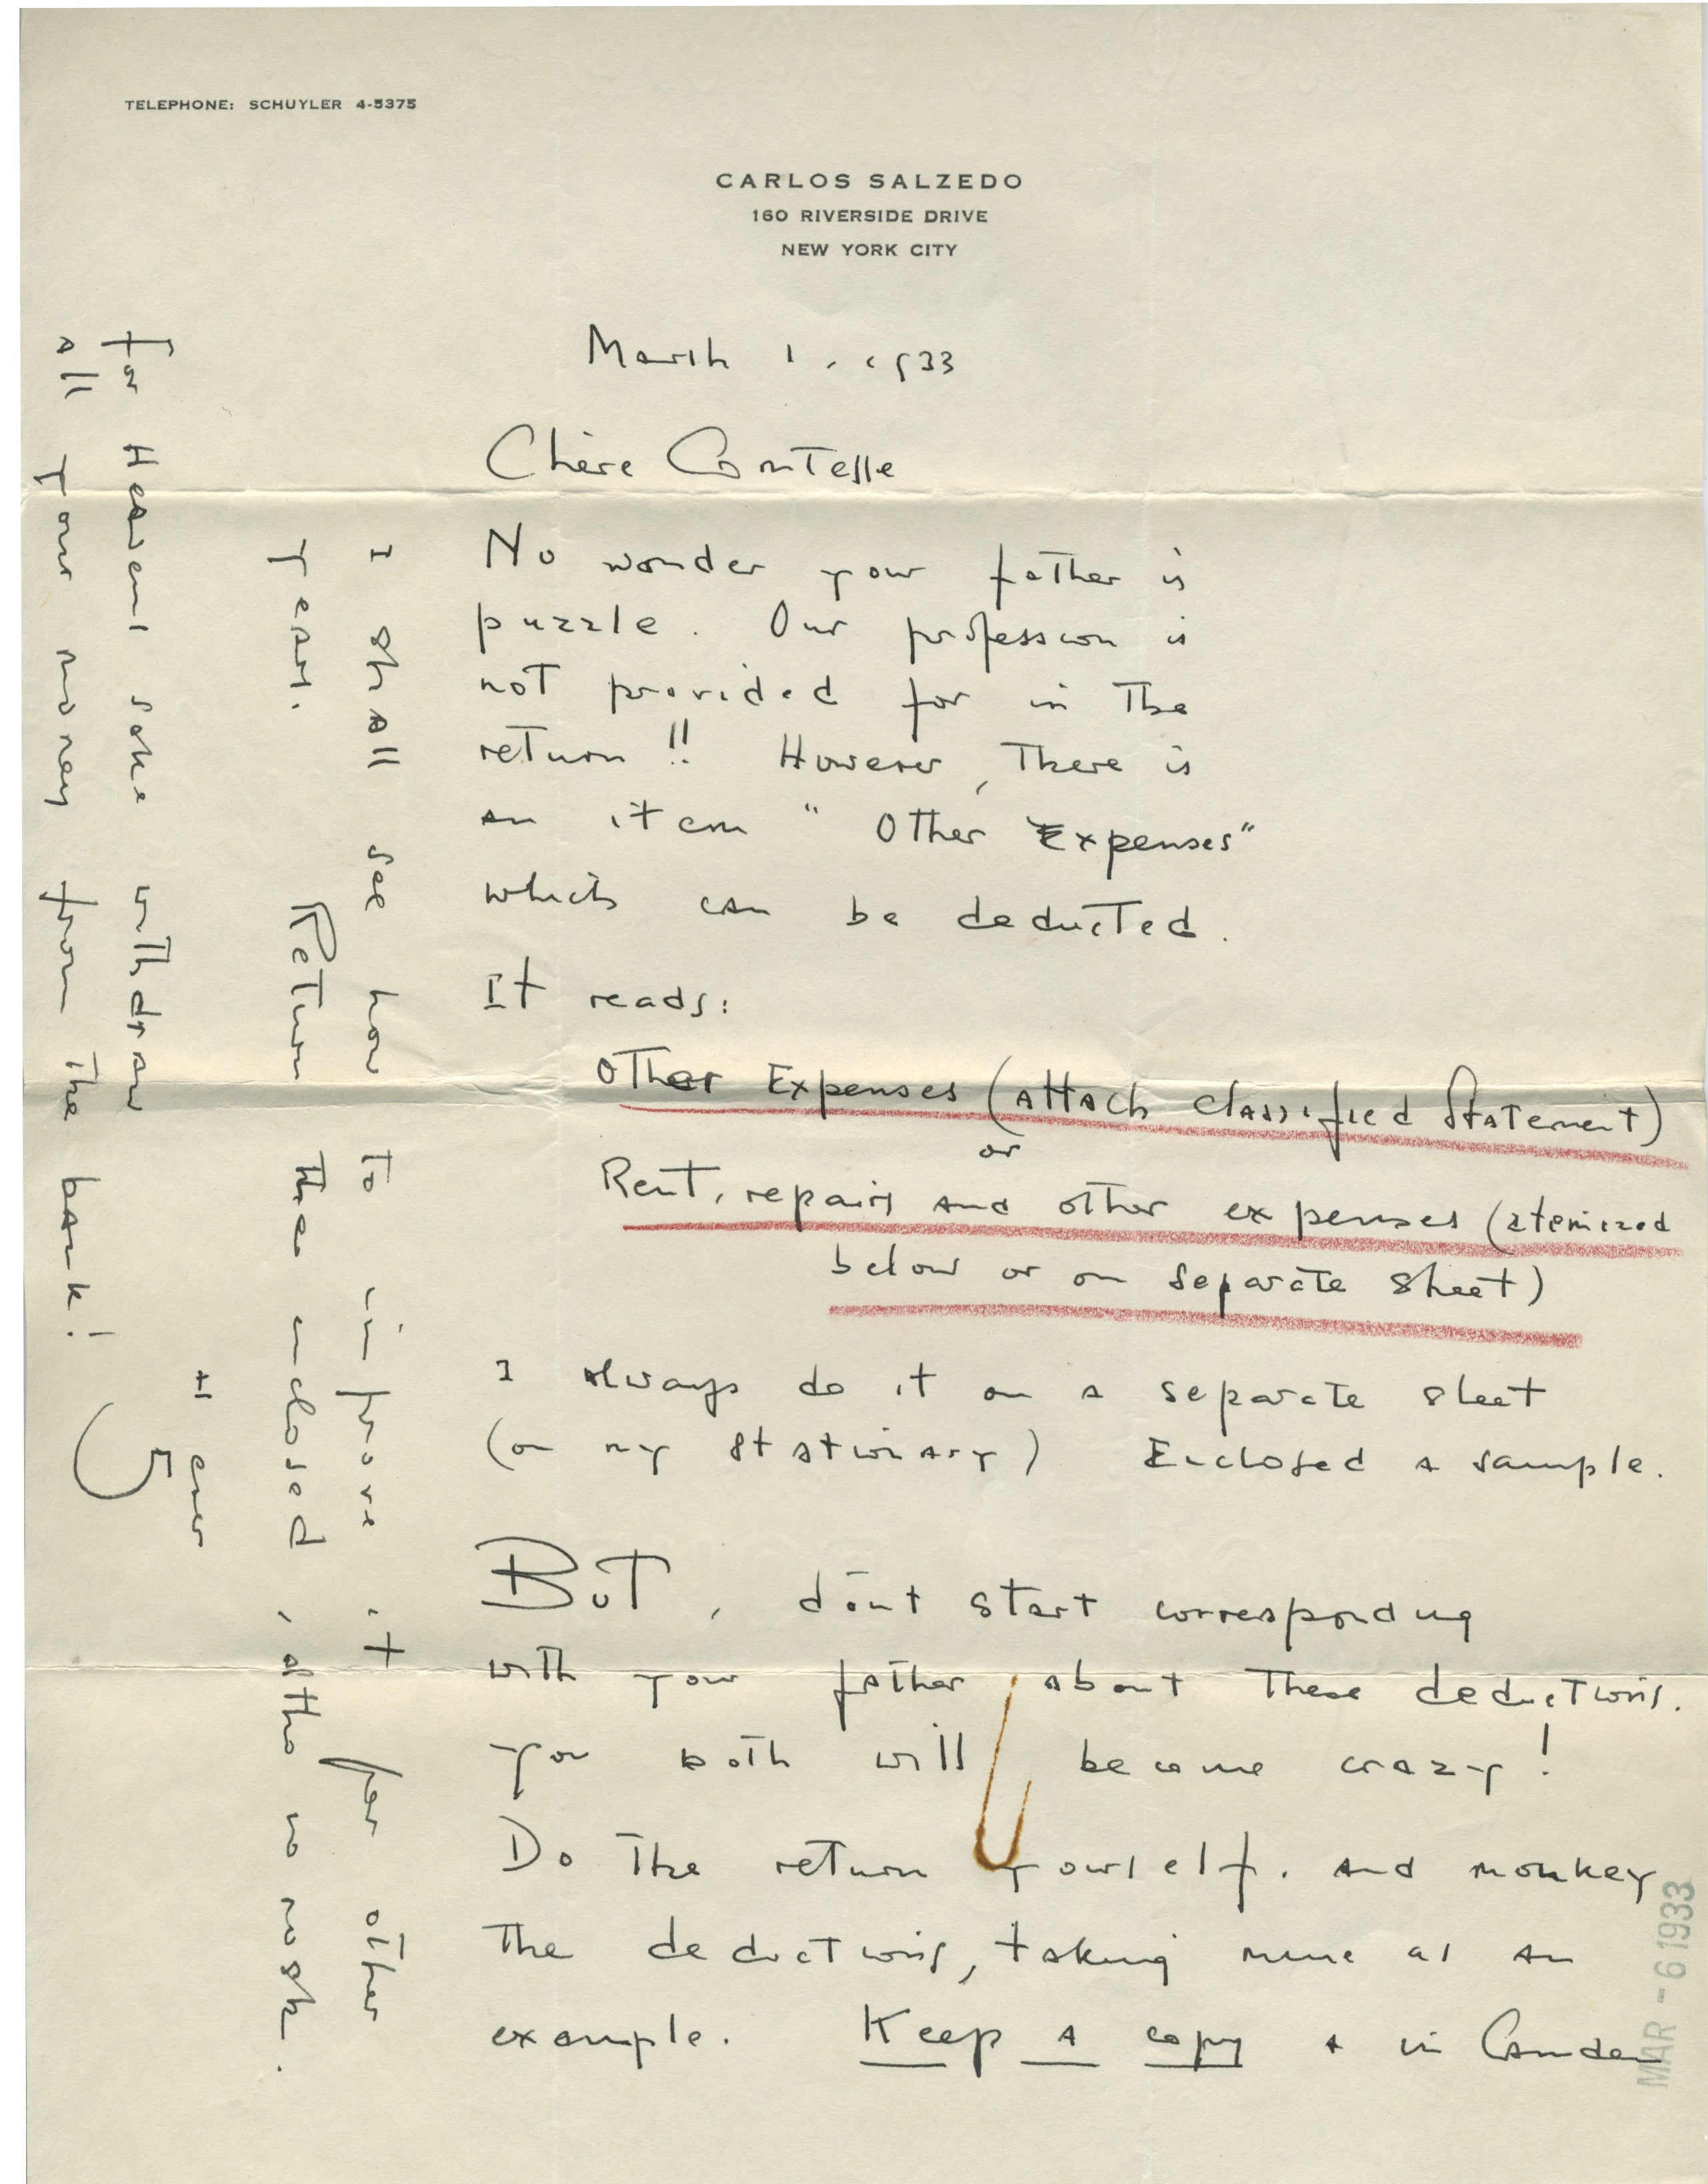 TELEPHONE: SCHUYLER 4-5375
CARLOS SALZEDO
160 RIVERSIDE DRIVE
NEW YORK CITY
March 1, 1933
Chère Comtesse
No wonder your father is
puzzle. Our profession is
not provided for in the
return!! However, there is
an item "Other Expenses"
which can be deducted.
It reads:
Other Expenses (attach classified statement)
or
Rent, repairs and other expenses (itemized
below or on separate sheet)
I always do it on a separate sheet
(on my stationary) Enclosed a sample.
But, don't start corresponding
with your father about these deductions.
you both will become crazy!
Do the return yourself. And monkey
the deductions, taking mine as an
example. Keep a copy & in Camden
I shall see how to improve it for other
years. Return the enclosed, altho no rush.
For Heavens sake withdraw
all your money from the bank!
ever
MAR - 6 1933